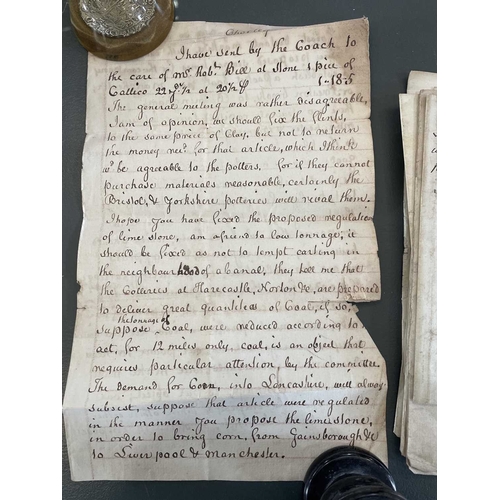 I have sent by the Coach to
the care of Mr Robt. Bill at Stone 1 piece of
Callico 22 yds 1/2 at 20d 1/2 1-18-5
The general meeting was rather disagreeable,
I am of opinion, we should fix the flints,
to the same price of Clay, but not to return
the money recd. for that article, which I think
wd. be agreeable to the potters. for if they cannot
purchase materials reasonable, certainly the
Bristol, & Yorkshire potteries will rival them.
I hope you have fixed the proposed regulation
of lime stone, am a friend to low tonnage; it
should be fixed as not to tempt carting in
the neighbourhood of a canal, they tell me that
the Collieries at Harecastle, Norton &c, are prepared
to deliver great quantities of Coal, if so,
suppose the tonnage of Coal, were reduced according to
act, for 12 miles only, coal, is an object that
requires particular attention, by the committee.
The demand for Corn, into Lancashire, will always
subsist, suppose that article were regulated
in the manner you propose the limestone,
in order to bring corn, from Gainsborough &c
to Liverpool & Manchester.